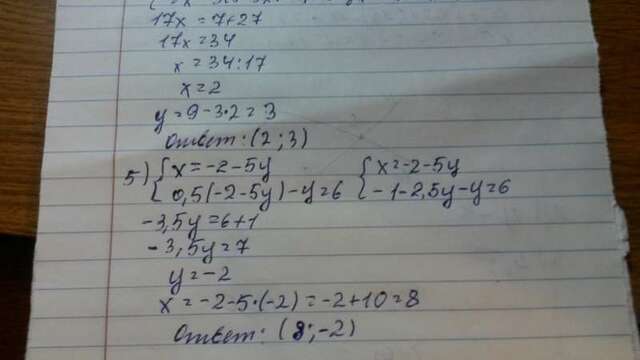 17x = 7+27
17x = 34
x = 34:17
x = 2
y = 9-3·2 = 3
Ответ: (2; 3)
5) { x = -2-5y { x = -2-5y
{ 0,5(-2-5y)-y=6 { -1-2,5y-y=6
-3,5y = 6+1
-3,5y = 7
y = -2
x = -2-5·(-2) = -2+10 = 8
Ответ: (8; -2)